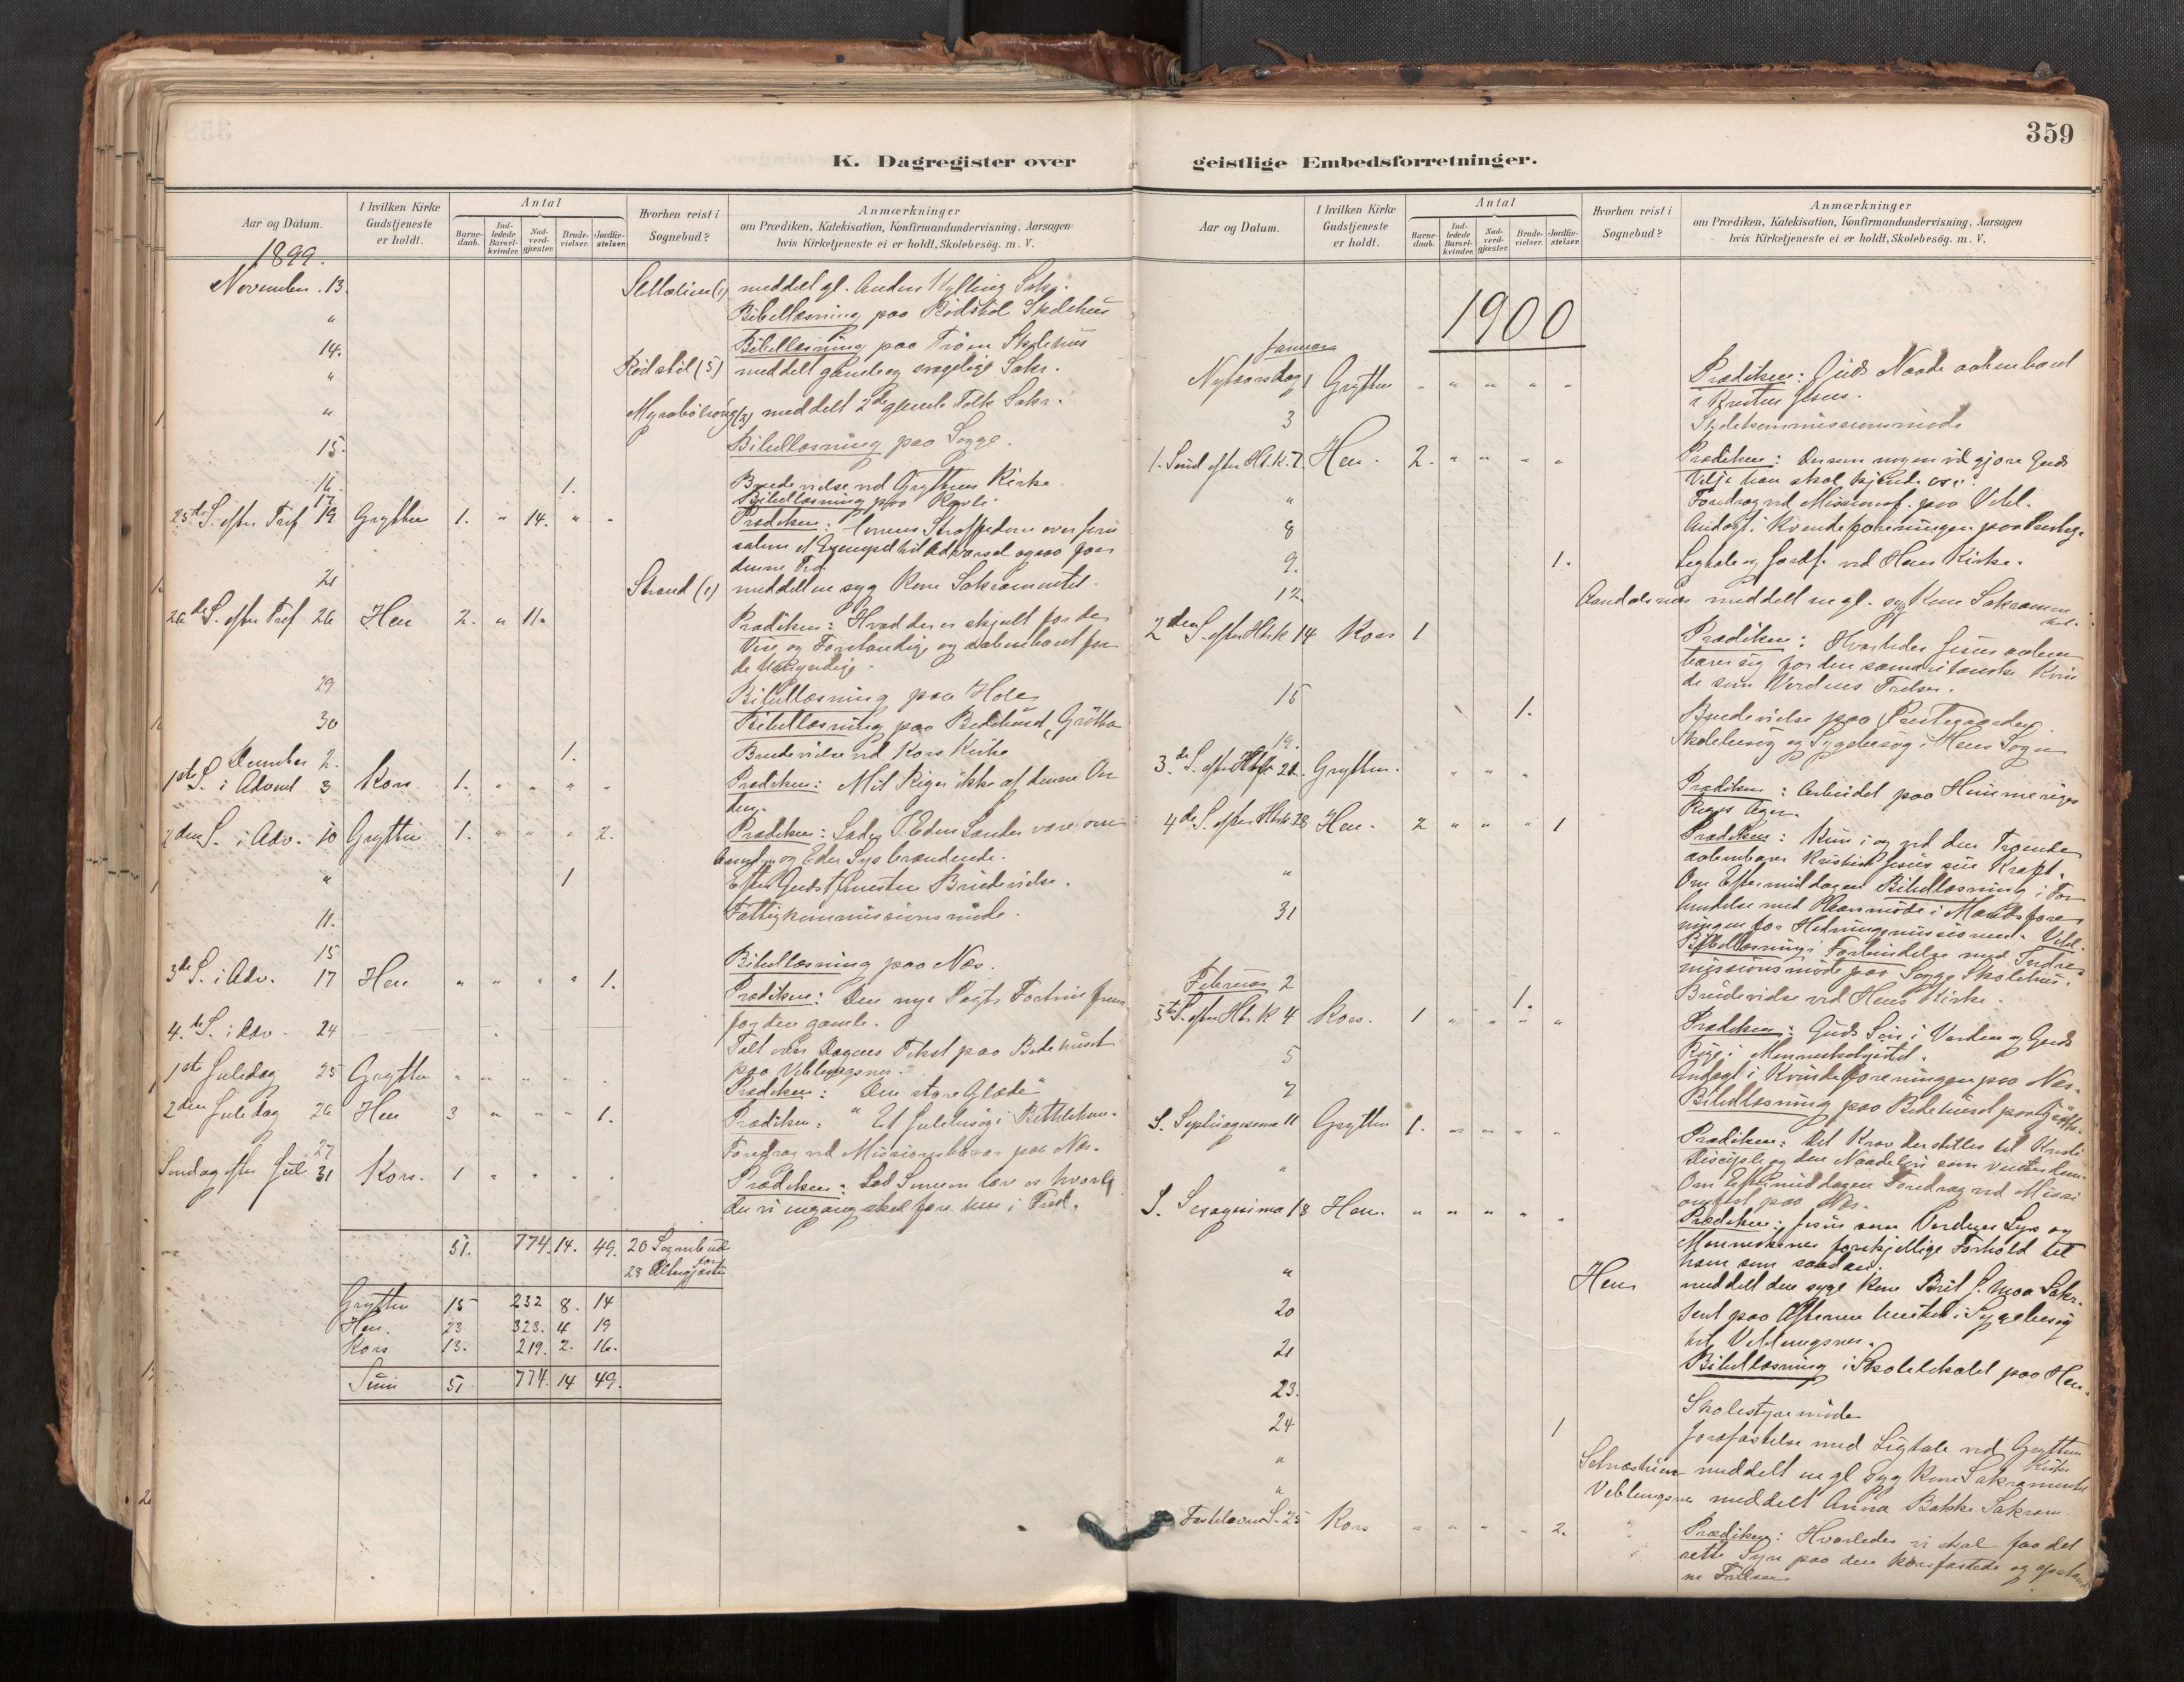 359
K. Dagregister over
geistlige Embedsforretninger.
Aar og Datum.
I hvilken Kirke Gudstjeneste er holdt.
Antal
Barne-daab.
Ind-ledede Barsel-kvinder.
Nad-verd-gjester.
Brude-vielser.
Jordfæ-stelser.
Hvorhen reist i Sognebud?
Anmærkninger
om Prædiken, Katekisation, Konfirmandundervisning, Aarsagen
hvis Kirketjeneste ei er holdt, Skolebesög. m. V.
1899.
November. 13. meddelt gl. Anders Kylling Sakr.
" Bibellæsning paa Rödstöl Skolehus
14. Bibellæsning paa Skolehus
" Rödstöl (5) meddelt gamle og svagelige Sakr.
" (3) meddelt 2de gamle Folk Sakr.
15. Bibellæsning paa Sogge.
16. 1. Brudevielse ved Gryttens Kirke.
17 Bibellæsning paa
25de S. efter Tref. 19 Grytten 1. " 14. " " Prædiken:
salem et Exempel til Advarsel ogsaa for
denne Tid
21 Strand (1) meddelt en syg Kone Sakramentet.
26de S. efter Tref 26 Hen 2. " 11. Prædiken: Hvad der er skjult for de
Vise og Forstandige og aabenbaret for
de Umyndige.
29 Bibellæsning paa Hole
30 Bibellæsning paa Bedehuset, Gröttа
December 2. 1. Brudevielse ved Kors Kirke
1ste S. i Advent 3 Kors 1. " " " " Prædiken: Mit Rige er ikke af denne Ver
den.
2den S. i Adv. 10 Grytten 1. " " " 2. Prædiken: Lader Eders Lænder være om
og Eders Lys brændende.
" 1 Efter Gudstjenesten Brudevielse.
11. Fattigkommissionsmöde.
15 Bibellæsning paa Næs.
3de S. i Adv. 17 Hen " " " " 1. Prædiken: Den nye Pagts Fortrin frem
for den gamle.
4.de S. i Adv. 24 Talt over Dagens Tekst paa Bedehuset
paa Veblungsnes.
1ste Juledag 25 Grytten " " " " " Prædiken: "Den store Glæde"
2den Juledag 26 Hen 3 " " " 1. Prædiken: "Et Julebesög i Bethlehem.
27 Foredrag ved Missionsbasar paa Næs.
Söndag efter Jul 31 Kors. 1 " " " " Prædiken: Lad Simeon lære os hvorle
des vi engang skal fare hen i Fred.
51. 774. 14. 49. 20 Sognebud
28 Altergjæster
Grytten 15 232 8. 14
Hen. 23 323. 4 19
Kors 13. 219. 2. 16.
Sum 51 774. 14 49.
Aar og Datum.
I hvilken Kirke Gudstjeneste er holdt.
Antal
Barne-daab.
Ind-ledede Barsel-kvinder.
Nad-verd-gjester.
Brude-vielser.
Jordfæ-stelser.
Hvorhen reist i Sognebud?
Anmærkninger
om Prædiken, Katekisation, Konfirmandundervisning, Aarsagen
hvis Kirketjeneste ei er holdt, Skolebesög. m. V.
1900
Januar
Nytaarsdag 1 Grytten " " " " " Prædiken: Guds Naade aabenbaret
i Kristus Jesus.
3
1. Sönd efter Htr.K. 7. Hen. 2. " " " " Prædiken: Dersom nogen vil gjöre Guds
Vilje han skal kjende osv.
" Foredrag ved Missionsf. paa Vebl.
8 Andagt i Kvindeforeningen paa Præsteg.
9. 1. Ligtale og Jordf. ved Hens Kirke.
12. Aandalsnæs meddelt en gl. syg Kone Sakramen
tet.
2den S. efter Htr.k 14 Kors 1 Prædiken: Hvorledes Jesus aaben
barer sig for den samaritanske Kvin
de som Verdens Frelser.
15 1. Brudevielse paa Prestegaarden
19. Skolebesög og Sygebesög i Hens Sogn
3.de S. efter Htk 21. Grytten. " " " Prædiken: Arbeidet paa Himmeriges
Riges Ager.
4de S. efter Htrk 28 Hen. 2 " " " 1 Prædiken: Kun i og ved den Troende
aabenbarer Kristus Jesus sin Kraft.
" Om Eftermiddagen Bibellæsning i For
bindelse med Aarsmöde i Mandsfore
ningen for Hedningemissionen. Vebl.
31 Bibellæsning i Forbindelse med Indre-
missionsmöde paa Sogge Skolehus.
Februar 2 1. Brudevielse ved Hens Kirke.
5te S. efter Htr K 4 Kors. 1 " " " " Prædiken: Guds Sön i Verden og Guds
Rige i Menneskehjertet.
5 Andagt i Kvindeforeningen paa Næs.
7 Bibellæsning paa Bedehuset paa Gröttа.
S. Septuagesima 11 Grytten 1. " " " " Prædiken: Det Krav der stilles til Kristi
Disciple og den Naadelön som venter dem.
" Om Eftermiddagen Foredrag ved Missi
onsfest paa Næs.
S. Sexagesima 18 Hen. " " " " " Prædiken: Jesus som Verdens Lys og
Menneskenes forskjellige Forhold til
ham som saadan.
" Hen meddelt den syge Kone Brit J. Moa Sakr.
20 Sent paa Aftenen hentet i Sygebesög
til Veblungsnes.
21 Bibellæsning i Skolelokalet paa Hen.
23. Skolestyremöde
24 1 Jordfæstelse med Ligtale ved Grytten
Kirke
" meddelt en gl syg Kone Sakramentet
" Veblungsnes meddelt Anna Bakke Sakram.
Fastelavns S. 25 Kors " " " " 2. Prædiken: Hvorledes vi skal faa det
rette Syn paa den korsfæstede og opstand
ne Frelser